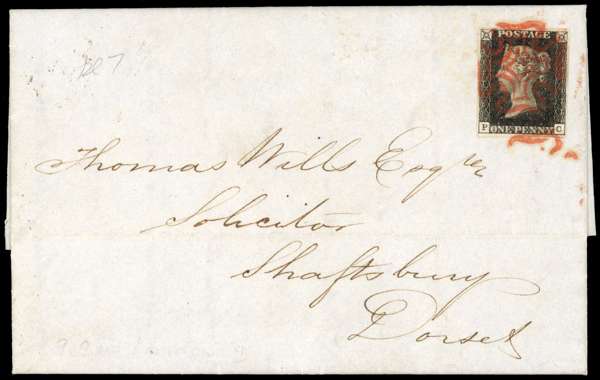 POSTAGE
P ONE PENNY C
Thomas Wills Esqre
Solicitor
Shaftsbury
Dorset